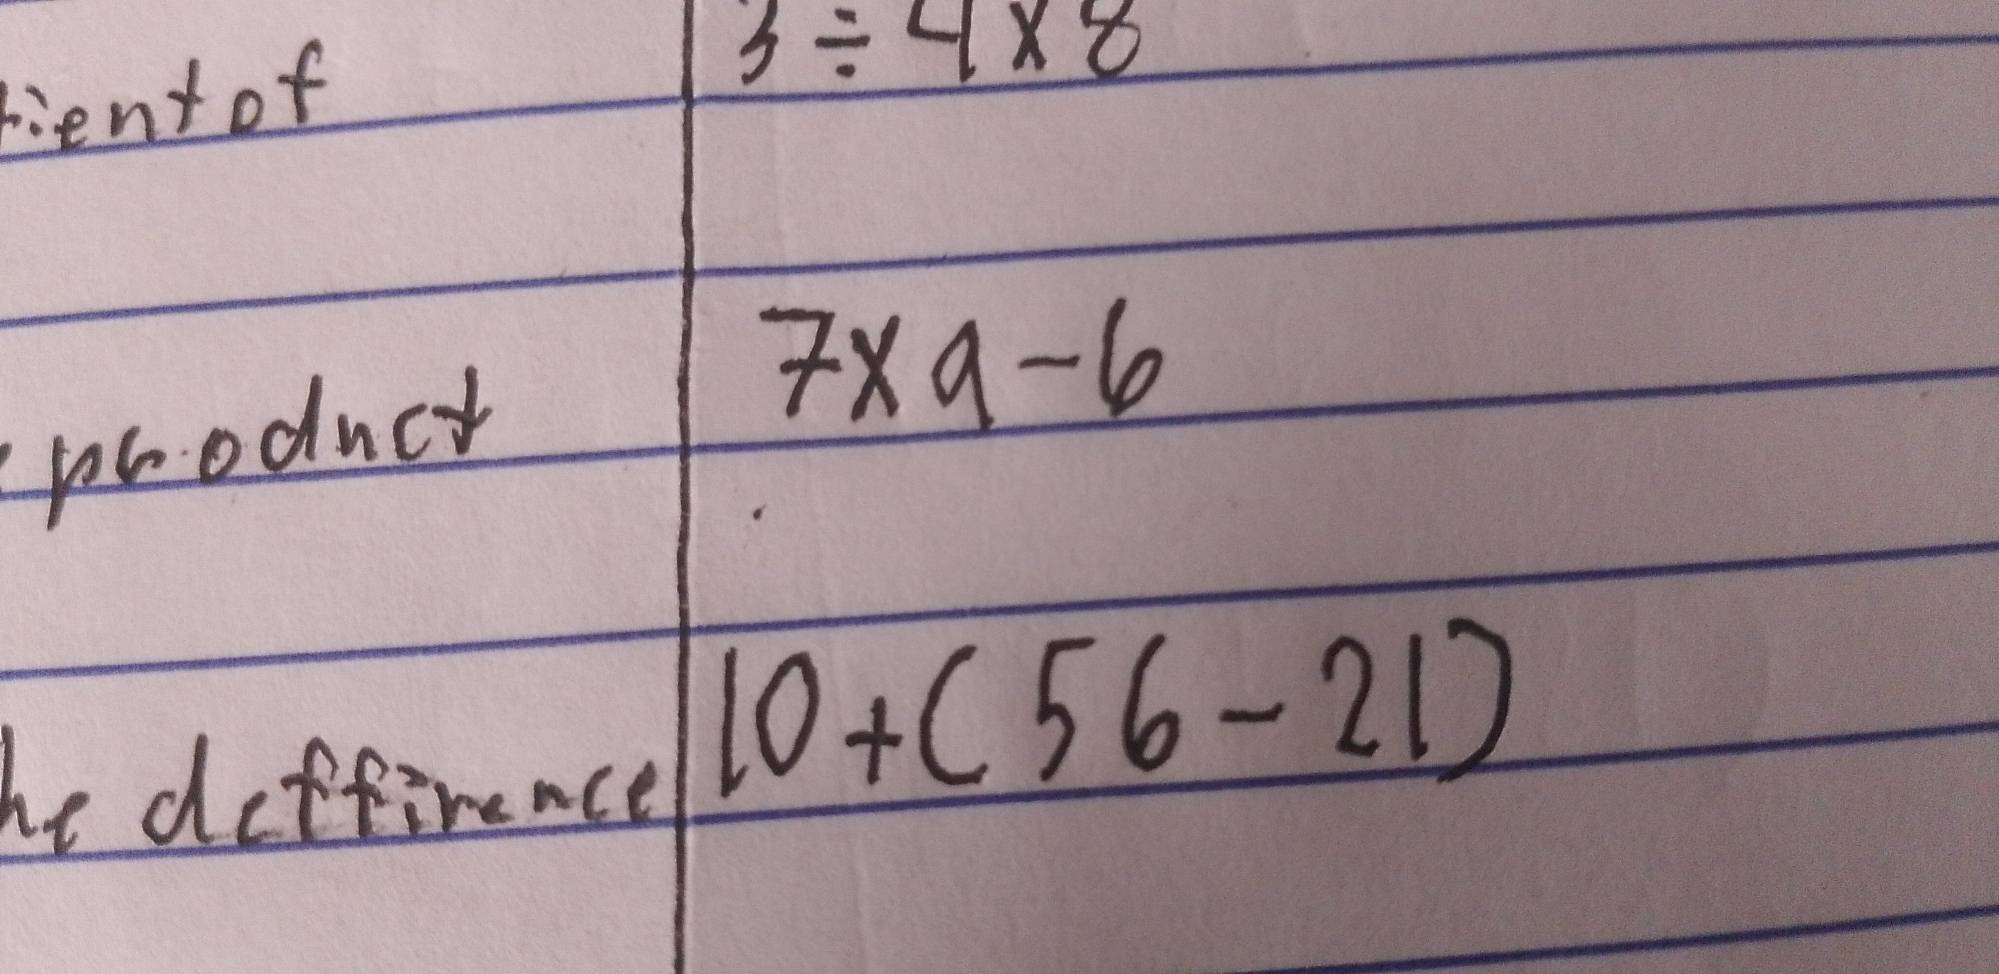 tient of 3 ÷ 4 x 8
product 7 x 9 - 6
he deffirence 10 + ( 56 - 21 )